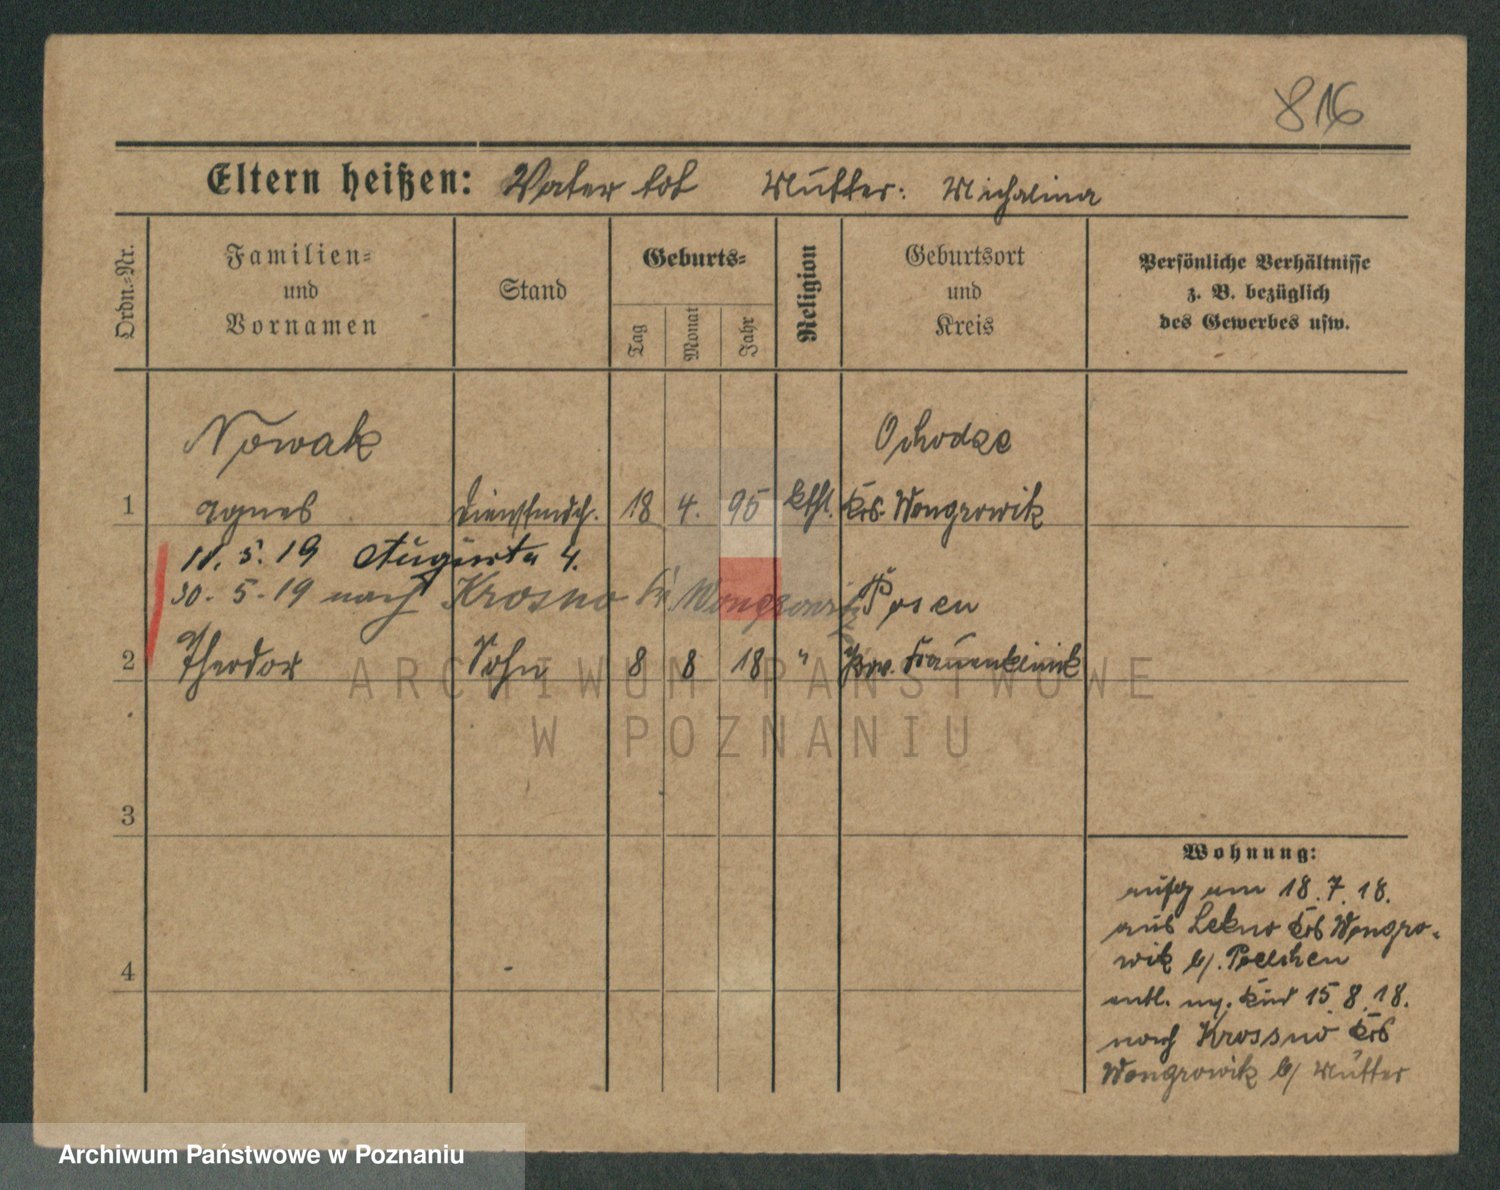 816
Eltern heißen: Vater tot Mutter: Michalina
Ordn.-Nr.
Familien-
und
Vornamen
Stand
Geburts-
Tag
Monat
Jahr
Religion
Geburtsort
und
Kreis
Persönliche Verhältnisse
z. B. bezüglich
des Gewerbes usw.
Nowak Ochodze
1 Agnes Dienstmdch. 18 4. 95 kthl. Krs. Wongrowitz
11. 5. 19 Augusta 4.
30. 5. 19 nach Krosno Kr. Wongrowitz Posen
2 Theodor Sohn 8 8 18 " Prov. Frauenklinik
3
4
Wohnung:
aufg am 18.7.18.
aus Lekno Krs Wongro-
witz b/.
entl. m. Kind 15.8.18.
nach Krossno Krs
Wongrowitz b/ Mutter
ARCHIWUM PAŃSTWOWE
W POZNANIU
Archiwum Państwowe w Poznaniu